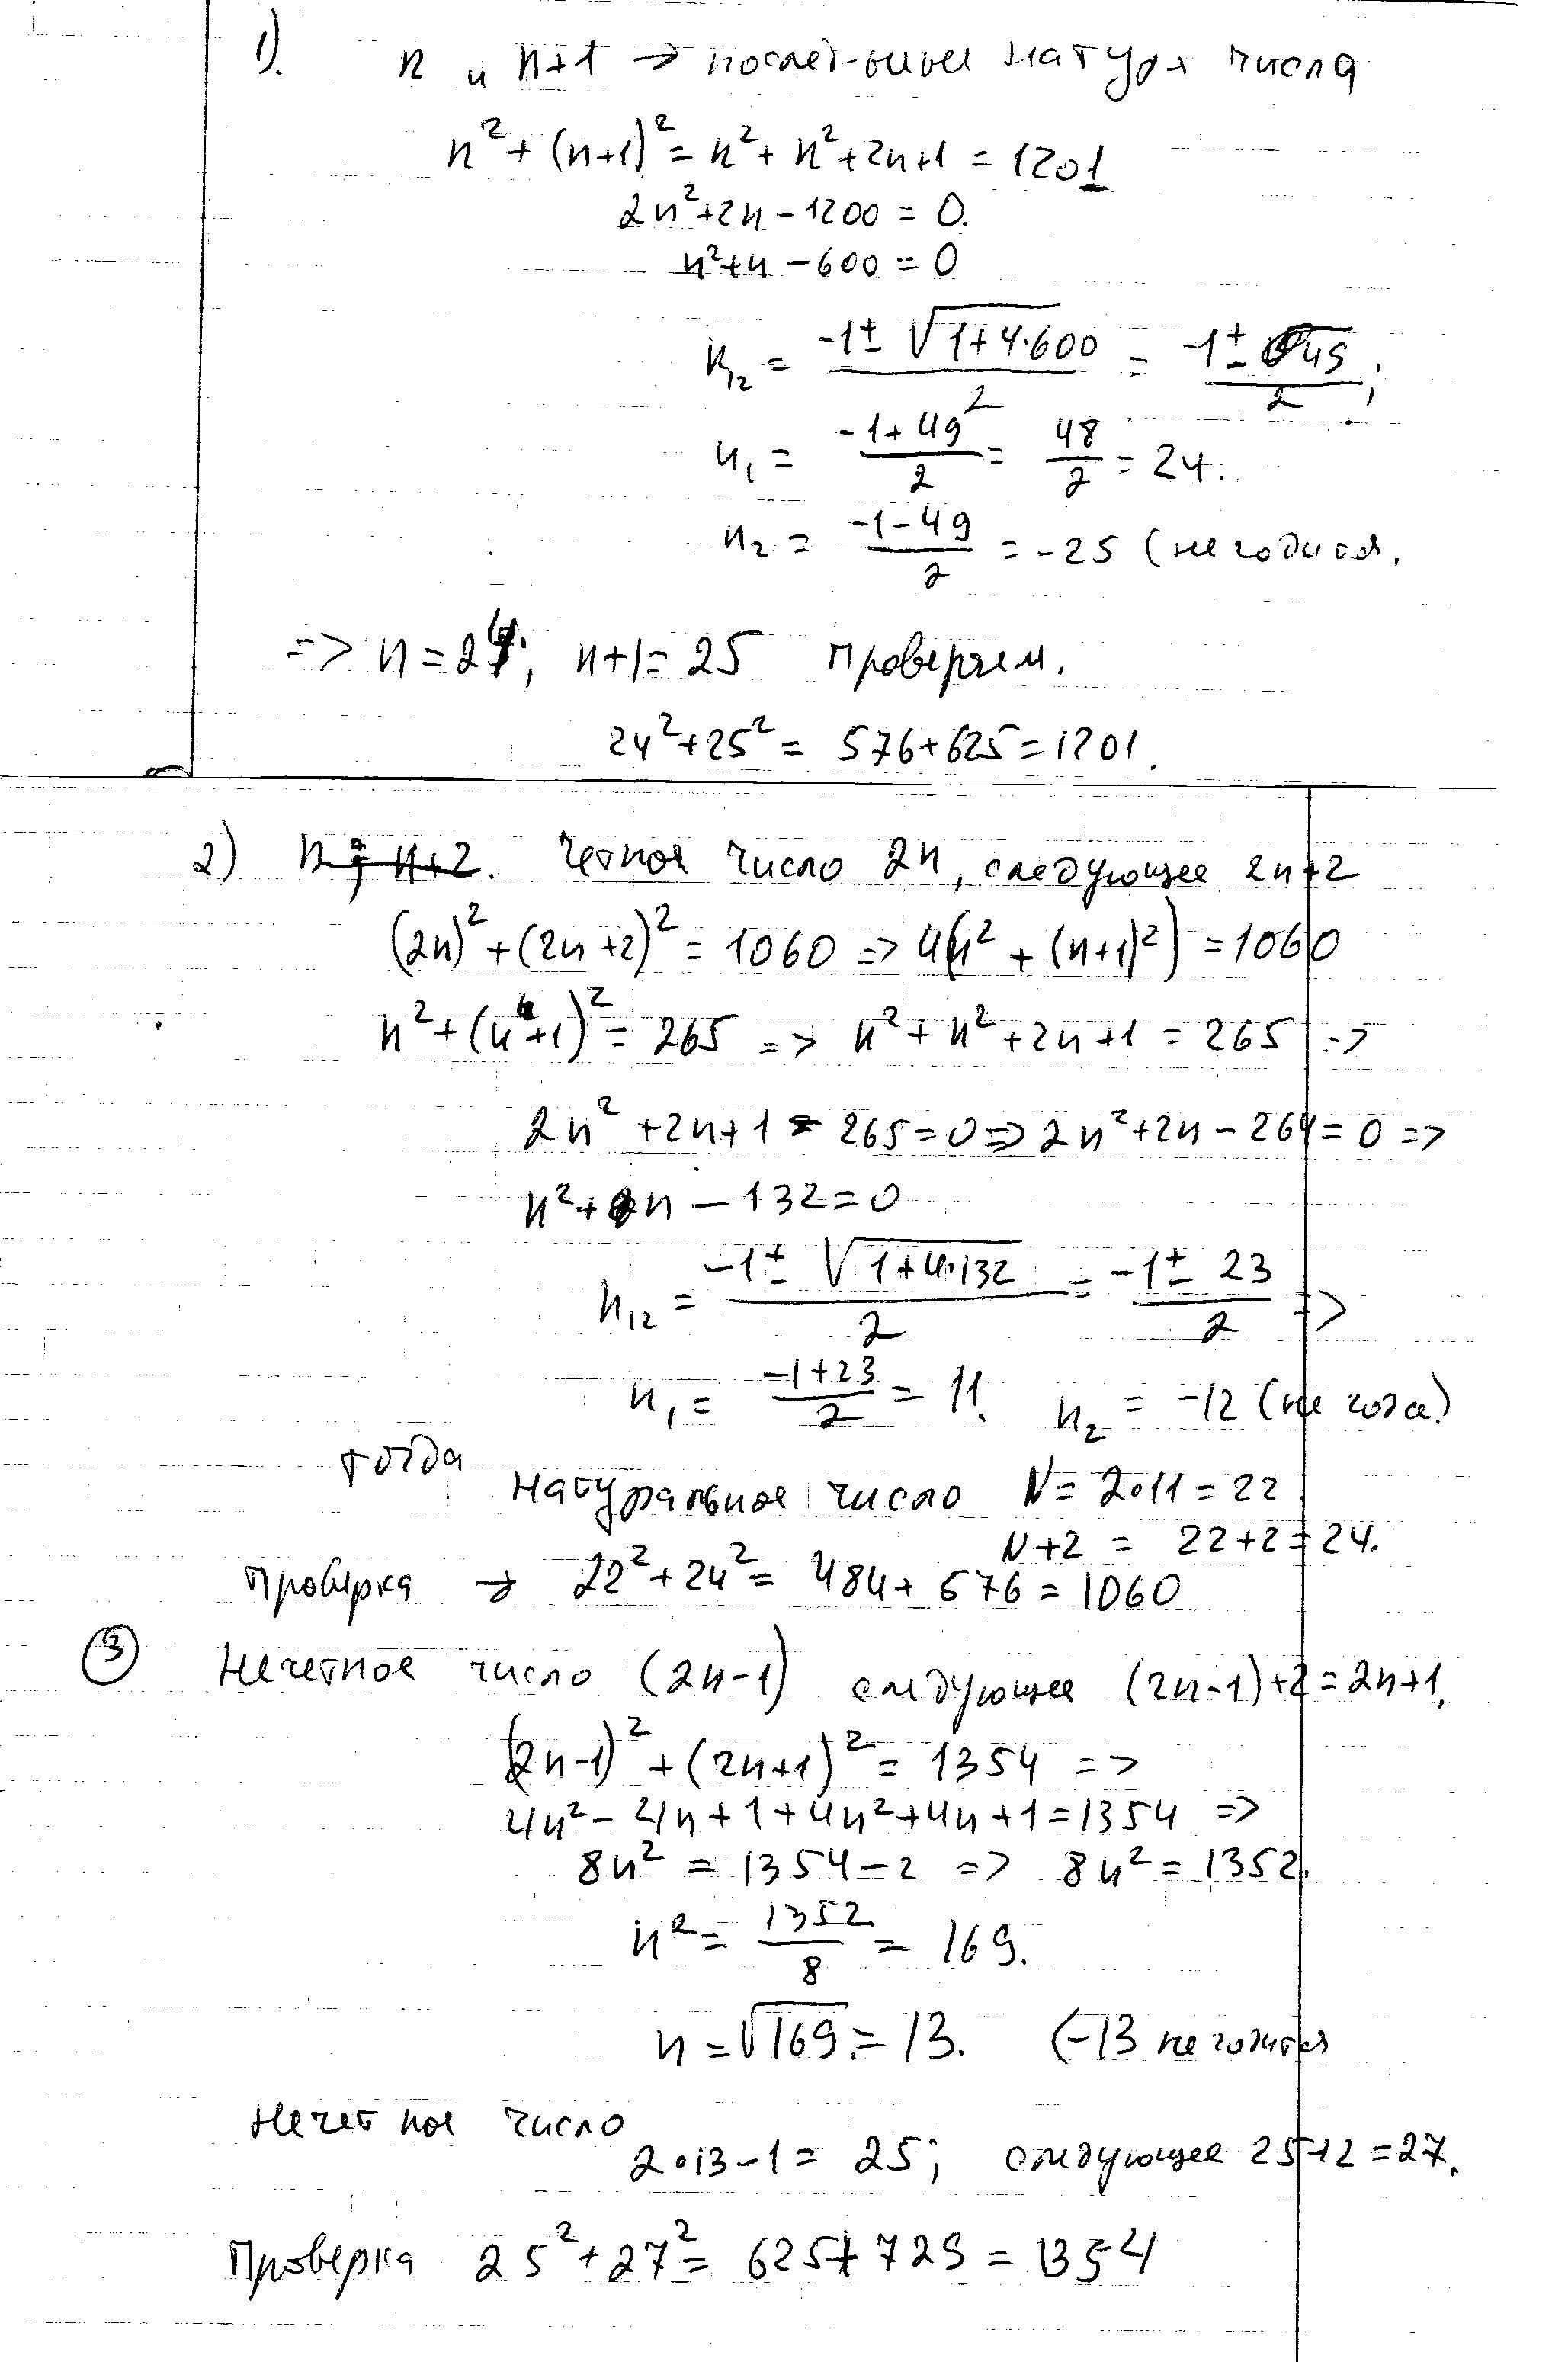 1). n и n+1 → послед-ные натур числа
n² + (n+1)² = n² + n² + 2n+1 = 1201
2n²+2n-1200 = 0.
n²+n-600 = 0
n₁₂ = (-1± √(1+4·600))/2 = (-1± 49)/2;
n₁ = (-1+49)/2 = 48/2 = 24.
n₂ = (-1-49)/2 = -25 (не годится.
=> n = 24; n+1 = 25 проверяем.
24²+25² = 576+625 = 1201.
2) n; n+2. Четное число 2n, следующее 2n+2
(2n)² + (2n+2)² = 1060 => 4(n² + (n+1)²) = 1060
n² + (n+1)² = 265 => n² + n² + 2n+1 = 265 =>
2n² + 2n+1 - 265 = 0 => 2n²+2n-264 = 0 =>
n² + n - 132 = 0
n₁₂ = (-1± √(1+4·132))/2 = (-1± 23)/2 =>
n₁ = (-1+23)/2 = 11. n₂ = -12 (не )
тогда
натуральное число N = 2·11 = 22
N+2 = 22+2 = 24.
Проверка → 22²+24² = 484+576 = 1060
3 Нечетное число (2n-1) следующее (2n-1)+2 = 2n+1.
(2n-1)² + (2n+1)² = 1354 =>
4n² - 4n+1+4n²+4n+1 = 1354 =>
8n² = 1354-2 => 8n² = 1352.
n² = 1352/8 = 169.
n = √169 = 13. (-13 не годится
Нечетное число
2·13-1 = 25; следующее 25+2 = 27.
Проверка 25²+27² = 625+729 = 1354